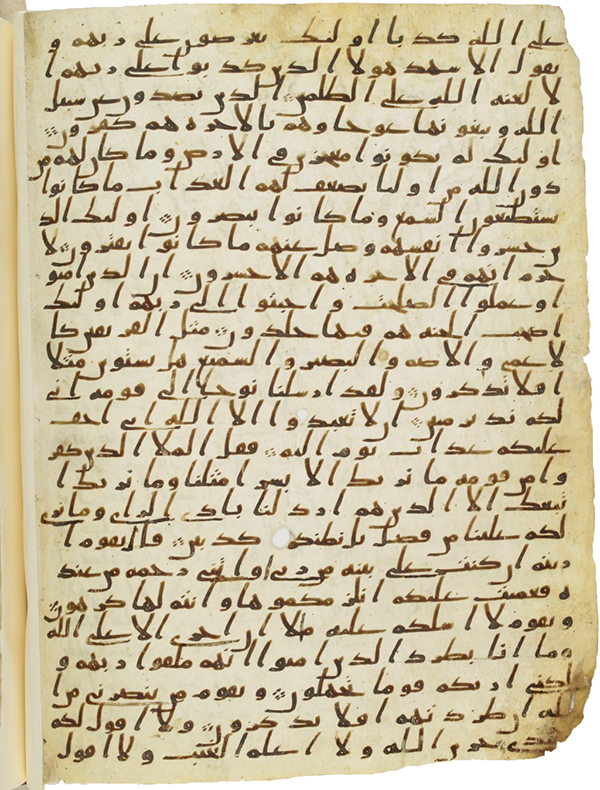 على الله كذبا اولئك يعرضون على ربهم و
يقول الاشهد هولا الذين كذبوا على ربهم ا
لا لعنة الله على الظلمين الذين يصدون عن سبيل
الله ويبغونها عوجا وهم بالاخرة هم كفرون
اولئك لم يكونوا معجزين في الارض وما كان لهم من
دون الله من اوليا يضعف لهم العذاب ما كانوا
يستطيعون السمع وما كانوا يبصرون اولئك الذ
ين خسروا انفسهم وضل عنهم ما كانوا يفترون لا
جرم انهم في الاخرة هم الاخسرون ان الذين امنو
ا وعملوا الصلحت واخبتوا الى ربهم اولئك
اصحب الجنة هم فيها خلدون مثل الفريقين كا
لاعمى والاصم والبصير والسميع هل يستوين مثلا
افلا تذكرون ولقد ارسلنا نوحا الى قومه اني
لكم نذير مبين ان لا تعبدوا الا الله اني اخف
عليكم عذاب يوم اليم فقل الملا الذين كفر
وا من قومه ما نريك الا بشرا مثلنا وما نريك ا
تبعك الا الذين هم ارذلنا بادي الراي وما نري
لكم علينا من فضل بل نظنكم كذبين قال يقوم ا
ريتم ان كنت على بينة من ربي واتني رحمة من عند
ه فعميت عليكم انلزمكموها وانتم لها كرهون
ويقوم لا اسلكم عليه ملا ان اجري الا على الله
وما انا بطرد الذين امنوا انهم ملقوا ربهم و
لكني اريكم قوما تجهلون ويقوم من ينصرني من ا
لله ان طردتهم افلا تذكرون ولا اقول لكم
عندي خزين الله ولا اعلم الغيب ولا اقول